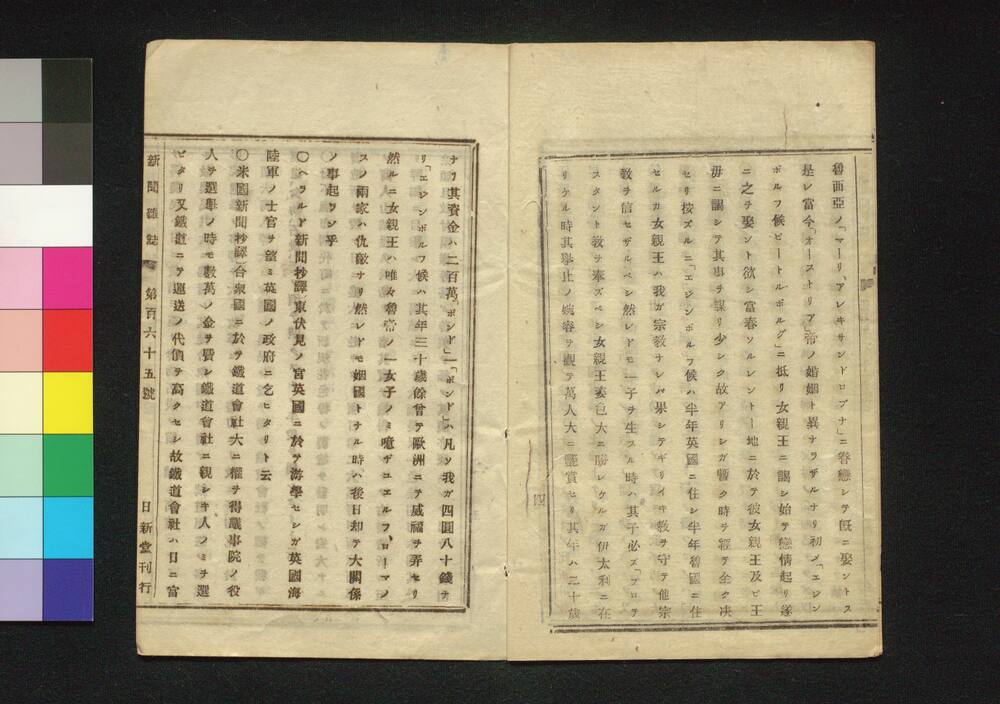 魯西亞ノ「マーリ、アレキサンドロブナ」ニ眷戀シテ既ニ娶ントス
是レ當今「オーストリア」帝ノ婚姻ト異ナラザルナリ初メ「エジン
ボルフ侯ピートルボルグ」ニ抵リ女親王ニ謁シ始テ戀情起リ遂
ニ之ヲ娶ント欲シ富春ソルレントー地ニ於テ彼女親王及ビ王
毋ニ謁シテ其事ヲ謀リ少シク故アリシガ暫ク時ヲ經テ全ク决
セリ按ズルニ「エジンボルフ侯ハ半年英國ニ住シ半年魯國ニ住
セルガ女親王ハ我ガ宗教ナレバ果シテギリイキ教ヲ守テ他宗
教ヲ信セザルベシ然レドモ一子ヲ生フル時ハ其子必ズ「プロテ
スタント教ヲ奉ズベシ女親王姿色大ニ勝レケルガ伊太利ニ在
リケル時其擧止ノ婉容ヲ觀テ萬人大ニ艷賞セリ其年ハ二十歳
四
ナリ其資金ハ二百萬「ポンド」一「ポンド」ハ凡ソ我ガ四圓八十錢ナ
リ「エジンボルフ侯ハ其年三十歳餘曾テ歐洲ニテ威福ヲ弄セリ
然ルニ女親王ハ唯々魯帝ノ一女子ノミ噫ゲユエルフ、ローマノ
スノ兩家ハ仇敵ナリ然レドモ姻國トナル時ハ後日却テ大關係
ノ事起ラン乎
○ヘラルド新聞抄譯東伏見ノ宮英國ニ於テ游學セシガ英國海
陸軍ノ士官ヲ望ミ英國ノ政府ニ乞ヒタリト云
○米國新聞抄譯合衆國ニ於テ鐵道會社大ニ權ヲ得議事院ノ役
人ヲ選擧ノ時モ數萬ノ金ヲ費シ鐵道會社ニ親シキ人ノミヲ選
ビタリ又鐵道ニテ運送ノ代價ヲ高クセシ故鐵道會社ハ日ニ富
新聞雜誌 第百六十五號 日新堂刊行